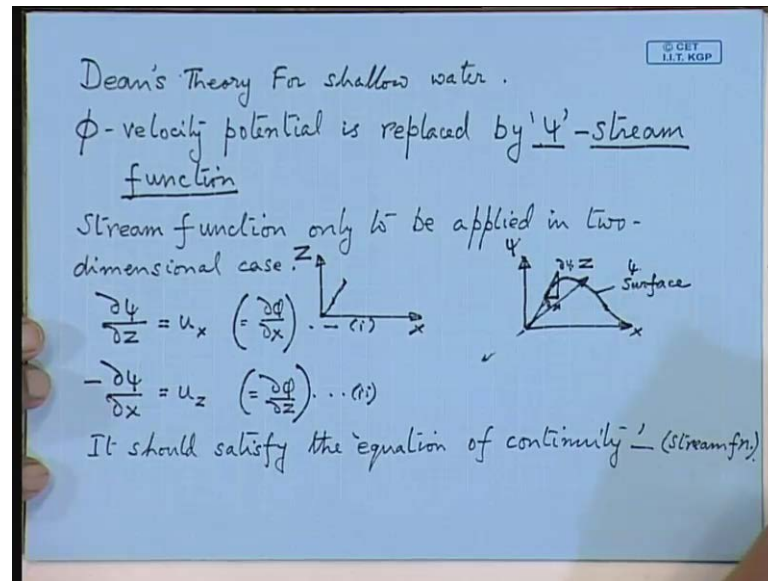 © CET
I.I.T. KGP
Dean's Theory For shallow water.
ϕ - velocity potential is replaced by 'ψ' - stream
function
Stream function only to be applied in two-
dimensional case.
Z
x
ψ
∂ψ
Z
∂x
ψ
surface
x
∂ψ/∂z = u_x (= ∂ϕ/∂x) . - (i)
-∂ψ/∂x = u_z (= ∂ϕ/∂z) ... (ii)
It should satisfy the 'equation of continuity' - (stream fn.)